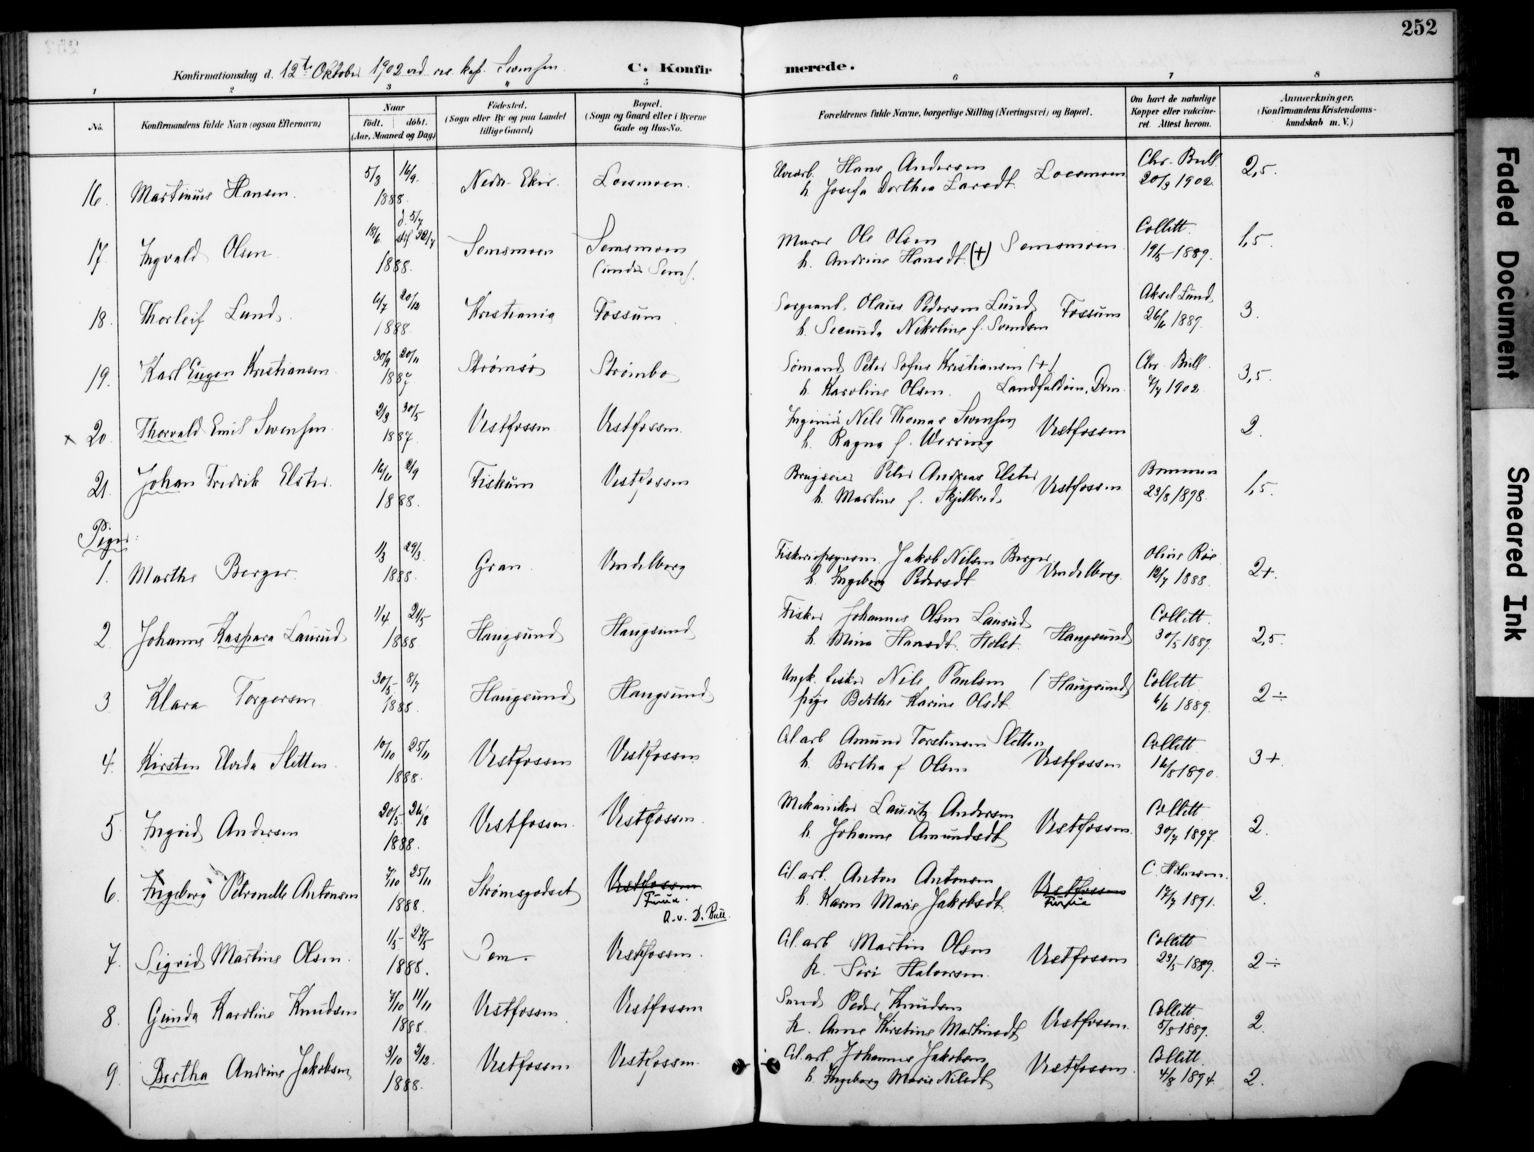 252
Konfirmationsdag d. 12te Oktober 1902 ved
C. Konfirmerede.
1 2 3 4 5 6 7 8
No.
Konfirmandens fulde Navn (ogsaa Efternavn)
Naar
født. døbt.
(Aar, Maaned og Dag)
Fødested.
(Sogn eller By og paa Landet
tillige Gaard)
Bopæl.
(Sogn og Gaard eller i Byerne
Gade og Hus-No.
Forældrenes fulde Navne, borgerlige Stilling (Næringsvei) og Bopæl.
Om havt de naturlige
Kopper eller vaccine-
ret. Attest herom.
Anmærkninger.
(Konfirmandens Kristendoms-
kundskab m. V.)
16. Martinius Hansen. 5/3 16/9. 1888. Nedre Eker. Loesmoen. Hans Andersen Loesmoen Chr. Bull 2,5
h. Josefa Dorthea Larsdt. 20/9 1902.
17. Ingvald Olsen. 18/6 1888. Semsmoen Semsmoen Murer Ole Olsen Semsmoen Collett. 1,5
(under Sem). h. Andrine Hansdt (+) 1889.
18. Thorleif Lund. 6/7 20/12 1888 Kristiania Fossum Sergeant Olaus Pedersen Lund Fossum Aksel Lund 3.
h. Secunda Nikoline f. Svendsen 26/6 1889.
19. Karl Eugen Kristiansen 30/9 20/11 1887 Strømsø Strømbo Sømand Peter Sofus Kristiansen (+) Chr. Bull 3,5.
h. Karoline Olsen Landfaldøen, Drm. 1902
x 20. Thorvald Emil Svensen 2/9 30/5 1887. Vestfossen Vestfossen Ingeniør Nils Thomas Svensen Vestfossen 2.
h. Ragna f. Werring
21. Johan Fredrik Elster 16/6 2/9 1888. Fiskum Vestfossen Brugseier Peter Andreas Elster Vestfossen 1,5.
h. Martine f. 23/8 1898.
Piger.
1. Marthe Berger. 1/3 29/3 1888. Gran Vendelborg Jakob Nilsen Berger Vendelborg. 2+.
h. Ingeborg Pedersdt 12/7 1888.
2. Johanne Kaspara Laurud 1/4 21/5 1888 Haugsund Haugsund Fisker Johannes Olsen Laurud Haugsund Collett. 2,5.
h. Mina Hansdt. Holst. 30/5 1889.
3. Klara Torgersen 30/5 8/7 1888. Haugsund Haugsund Ungk. fisker Nils Paulsen (Haugsund Collett 2÷
pige Berthe Karine Olsdt. 6/6 1889.
4. Kirsten Elvida Sletten. 10/10 25/11 1888. Vestfossen Vestfossen Cel arb Amund Torstensen Sletten Vestfossen Collett 3+.
h. Bertha f Olsen 16/8 1890.
5. Ingrid Andersen 20/5 26/8 1888. Vestfossen. Vestfossen. Mekaniker Lauritz Andersen Vestfossen. Collett 2.
h. Johanne Amundsdt 30/7 1897.
6. Ingeborg Petronelle Antonsen 7/10 25/11 1888. Strømsgodset Vestfossen Furua. Cel. arb. Anton Antonsen Vestfossen Furua 2.
h. Karen Marie Jakobsdt. 17/7 1891.
7. Sigrid Martine Olsen. 1/5 27/5 1888. Sem. Vestfossen. Cel. arb Martin Olsen Vestfossen Collett 2÷
h. Siri Halvorsen. 23/5 1889.
8. Gunda Karoline Knudsen 7/10 11/11 1888. Vestfossen. Vestfossen Smed Peder Knudsen Vestfossen. Collett 2.
h. Anne Kirstine Martinsdt 5/5 1889.
9. Bertha Andrine Jakobsen 3/10 2/12. 1888. Vestfossen Vestfossen. Cel. arb. Johannes Jakobsen Vestfossen. Collett 2.
h. Ingeborg Marie Nilsdt 4/8 1894.
Faded Document
Smeared Ink